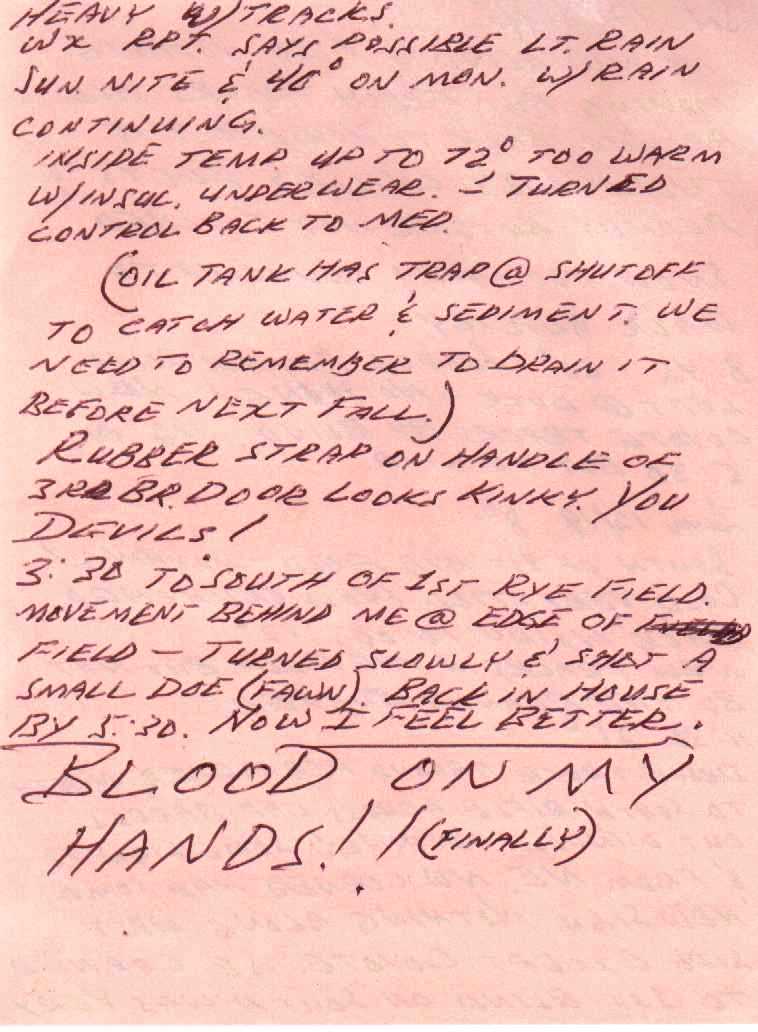 HEAVY W/TRACKS.
WX RPT. SAYS POSSIBLE LT. RAIN
SUN. NITE & 40° ON MON. W/RAIN
CONTINUING.
INSIDE TEMP. UP TO 72° TOO WARM
W/INSUL. UNDERWEAR. – TURNED
CONTROL BACK TO MED.
(OIL TANK HAS TRAP @ SHUTOFF
TO CATCH WATER & SEDIMENT. WE
NEED TO REMEMBER TO DRAIN IT
BEFORE NEXT FALL.)
RUBBER STRAP ON HANDLE OF
3RD BR. DOOR LOOKS KINKY. YOU
DEVILS!
3:30 TO SOUTH OF 1ST RYE FIELD.
MOVEMENT BEHIND ME @ EDGE OF
FIELD – TURNED SLOWLY & SHOT A
SMALL DOE (FAWN). BACK IN HOUSE
BY 5:30. NOW I FEEL BETTER.
BLOOD ON MY
HANDS!! (FINALLY)